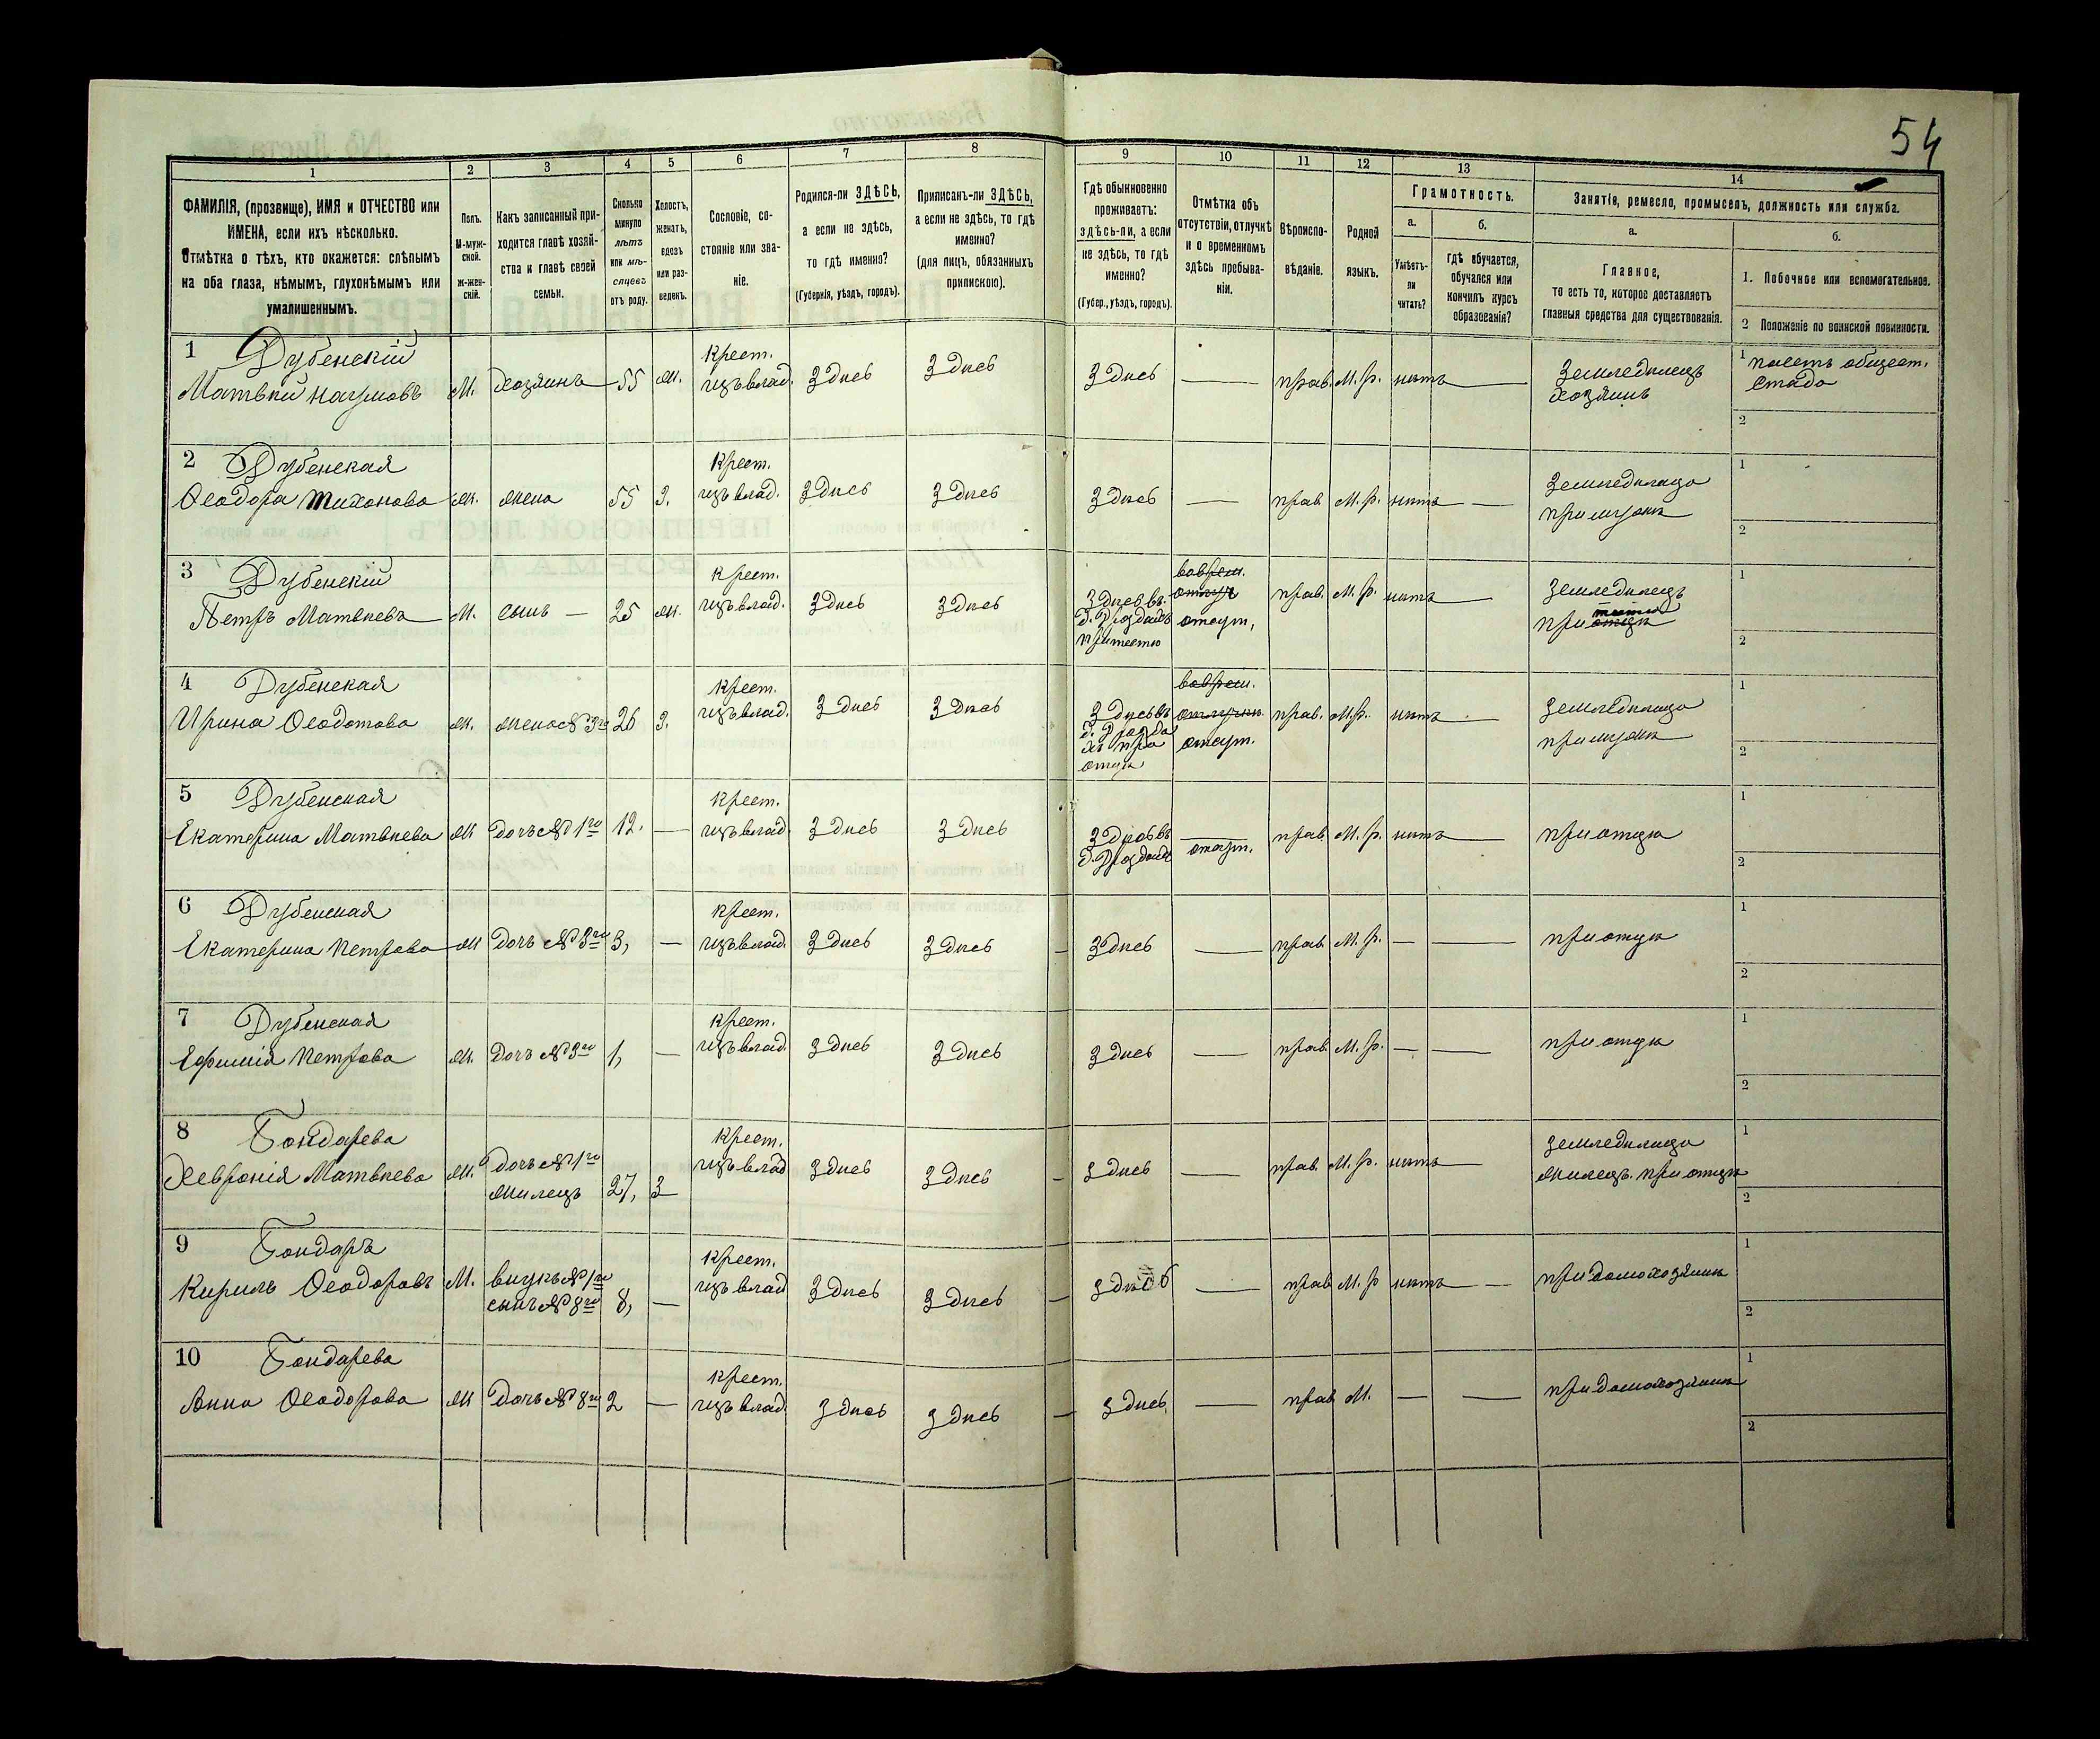 54
1 2 3 4 5 6 7 8 9 10 11 12 13 14
ФАМИЛІЯ, (прозвище), ИМЯ и ОТЧЕСТВО или
ИМЕНА, если ихъ нѣсколько.
Отмѣтка о тѣхъ, кто окажется: слѣпымъ
на оба глаза, нѣмымъ, глухонѣмымъ или
умалишеннымъ.
Полъ.
М-муж-
ской.
Ж-жен-
скій.
Какъ записанный при-
ходится главѣ хозяй-
ства и главѣ своей
семьи.
Сколько
минуло
лѣтъ
или мѣ-
сяцевъ
отъ роду.
Холостъ,
женатъ,
вдовъ
или раз-
веденъ.
Сословіе, со-
стояніе или зва-
ніе.
Родился-ли ЗДѢСЬ,
а если не здѣсь,
то гдѣ именно?
(Губернія, уѣздъ, городъ).
Приписанъ-ли ЗДѢСЬ,
а если не здѣсь, то гдѣ
именно?
(для лицъ, обязанныхъ
припискою).
Гдѣ обыкновенно
проживаетъ:
здѣсь-ли, а если
не здѣсь, то гдѣ
именно?
(Губер., уѣздъ, городъ).
Отмѣтка объ
отсутствіи, отлучкѣ
и о временномъ
здѣсь пребыва-
ніи.
Вѣроиспо-
вѣданіе.
Родной
языкъ.
Грамотность.
а.
Умѣетъ-
ли
читать?
б.
гдѣ обучается,
обучался или
кончилъ курсъ
образованія?
Занятіе, ремесло, промыселъ, должность или служба.
а.
Главное,
то есть то, которое доставляетъ
главныя средства для существованія.
б.
1. Побочное или вспомогательное.
2 Положеніе по воинской повинности.
1 Дубенскій
Матвѣй Наумовъ М. Хозяинъ 55 ж.
Крест.
изъ влад. Здѣсь Здѣсь Здѣсь — прав. М. р. нѣтъ —
Земледѣлецъ
хозяинъ
1 пасетъ общест.
стадо
2
2 Дубенская
Ѳеодора Тихонова ж. жена 55 З.
Крест.
изъ влад. Здѣсь Здѣсь Здѣсь — прав. М. р. нѣтъ —
Земледѣлица
при мужѣ
1
2
3 Дубенскій
Петръ Матвѣевъ М. сынъ — 25 ж.
Крест.
изъ влад. Здѣсь Здѣсь
Здѣсь въ
д. Дроздахъ
при тестю
отсут.
прав. М. р. нѣтъ —
Земледѣлецъ
при отцѣ
1
2
4 Дубенская
Ирина Ѳеодотова ж. жена № 3го 26 З.
Крест.
изъ влад. Здѣсь Здѣсь
Здѣсь въ
д. Дрозда
хъ при
отцѣ
отсут.
прав. М. р. нѣтъ —
Земледѣлица
при мужѣ
1
2
5 Дубенская
Екатерина Матвѣева ж дочь № 1го 12. —
Крест.
изъ влад. Здѣсь Здѣсь
Здѣсь въ
д. Дроздахъ
— отсут.
прав. М. р. нѣтъ — при отцѣ
1
2
6 Дубенская
Екатерина Петрова ж дочь № 3го 3, —
Крест.
изъ влад. Здѣсь Здѣсь Здѣсь — прав. М. р. — — при отцѣ
1
2
7 Дубенская
Ефимія Петрова ж. дочь № 3го 1, —
Крест.
изъ влад. Здѣсь Здѣсь Здѣсь — прав. М. р. — — при отцѣ
1
2
8 Бондарева
Хевронія Матвѣева ж. дочь № 1го
жилецъ 27, З
Крест.
изъ влад Здѣсь Здѣсь Здѣсь — прав. М. р. нѣтъ —
Земледѣлица
жилецъ при отцѣ
1
2
9 Бондарь
Кирилъ Ѳеодоровъ М. внукъ № 1го
сынъ № 8го 8, —
Крест.
изъ влад Здѣсь Здѣсь Здѣсь — прав М. р нѣтъ — при домохозяинѣ
1
2
10 Бондарева
Анна Ѳеодорова ж дочь № 8го 2 —
Крест.
изъ влад. Здѣсь Здѣсь Здѣсь — прав М. — — при домохозяинѣ
1
2